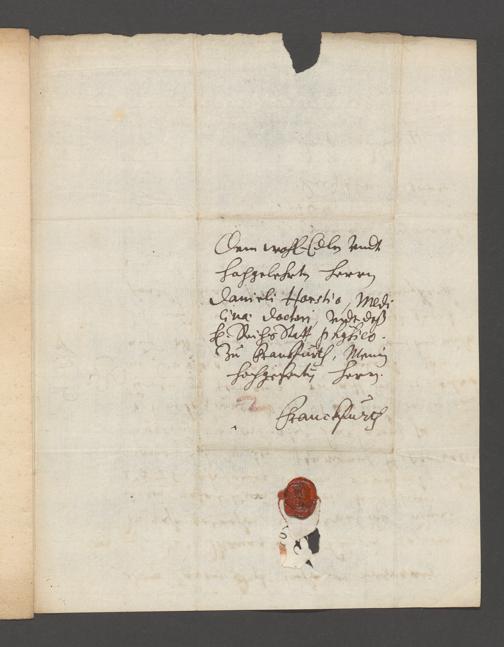 Dem wohl-Edlen undt
hochgelehrten Herrn
Danieli Horstio, Medi-
cinæ Doctori, undt deß
H. Reichs Statt physico
Zu Franckfurth, Meinem
hochgeehrten Herrn.
Franckfurth